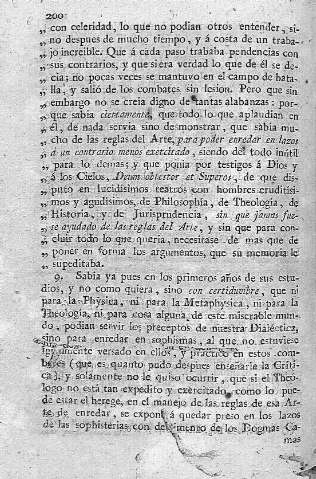 200
„ con celeridad, lo que no podian otros entender, si-
„ no despues de mucho tiempo, y á costa de un traba-
„ jo increible. Que á cada paso trababa pendencias con
„ sus contrarios, y que siera verdad lo que de él se de-
„ cia; no pocas veces se mantuvo en el campo de bata-
„ lla, y salió de los combates sin lesion. Pero que sin
„ embargo no se creia digno de tantas alabanzas: por-
„ que sabia ciertamente, que todo lo que aplaudian en
„ él, de nada servia sino de monstrar, que sabia mu-
„ cho de las reglas del Arte, para poder enredar en lazos
„ á un contrario menos exercitado, siendo del todo inutil
„ para lo demas; y que ponia por testigos á Dios y
„ á los Cielos, Deum obtestor et Superos, de que dis-
„ putó en lucidisimos teatros con hombres eruditisi-
„ mos y agudisimos, de Philosophía, de Theología, de
„ Historia, y de Jurisprudencia, sin que jamás fue-
„ se ayudado de las reglas del Arte, y sin que para con-
„ cluir todo lo que queria, necesitase de mas que de
„ poner en forma los argumentos, que su memoria le
„ supeditaba.
9. Sabía ya pues en los primeros años de sus estu-
dios, y no como quiera, sino con certidumbre, que ni
para la Physica, ni para la Metaphysica, ni para la
Theología, ni para cosa alguna de este miserable mun-
do, podian servir los preceptos de nuestra Dialéctica,
sino para enredar en sophismas, al que no estuviese
igualmente versado en ellos, y práctico en estos com-
bates (que es quanto pudo despues enseñarle la Críti-
ca), y solamente no le quiso ocurrir, que si el Theó-
logo no está tan expedito y exercitado, como lo pue-
de estar el herege, en el manejo de las reglas de esa Ar-
te de enredar, se expone á quedar preso en los lazos
de las sophisterías con del mengo de los Dogmas Ca-
mas